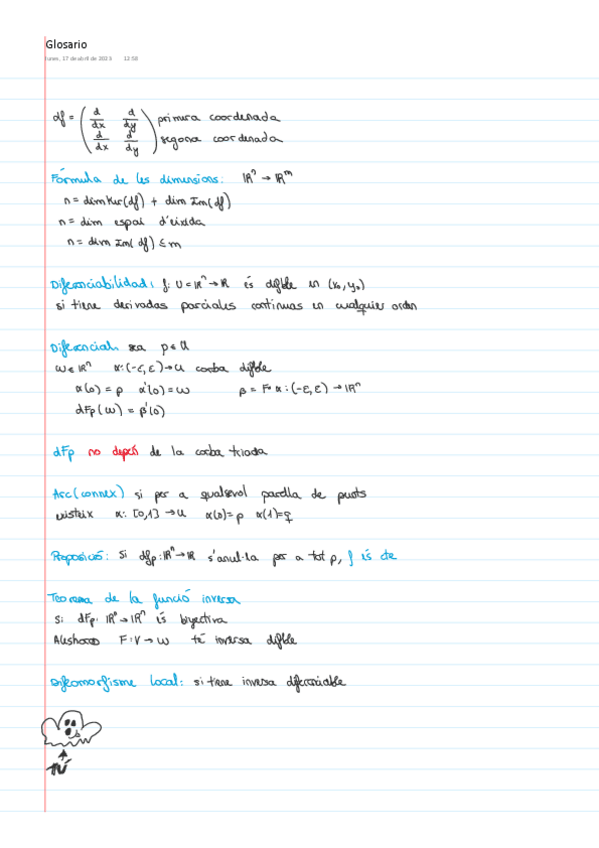 Glosario
lunes, 17 de abril de 2023 12:58
df = ( d/dx d/dy ) primera coordenada
( d/dx d/dy ) segona coordenada
Fórmula de les dimensions: ℝⁿ → ℝᵐ
n = dim Ker(df) + dim Im(df)
n = dim espai d'eixida
n = dim Im(df) ≤ m
Diferenciabilidad: f: U = ℝⁿ → ℝ és difble en (x₀, y₀)
si tiene derivadas parciales continuas en cualquier orden
Diferencial: sea p ∈ U
w ∈ ℝⁿ α: (-ε, ε) → U corba difble
α(0) = p α'(0) = w β = F∘α: (-ε, ε) → ℝⁿ
dFp(w) = β'(0)
dFp no depén de la corba triada
Arc(connex) si per a qualsevol parella de punts
existeix α: [0,1] → U α(0) = p α(1) = q
Proposició: Si dfp: ℝⁿ → ℝ s'anul·la per a tot p, f és cte
Teorema de la funció inversa
Si dFp: ℝⁿ → ℝⁿ és bijectiva
Aleshores F: V → W té inversa difble
Difeomorfisme local: si tiene inversa diferenciable
TÚ